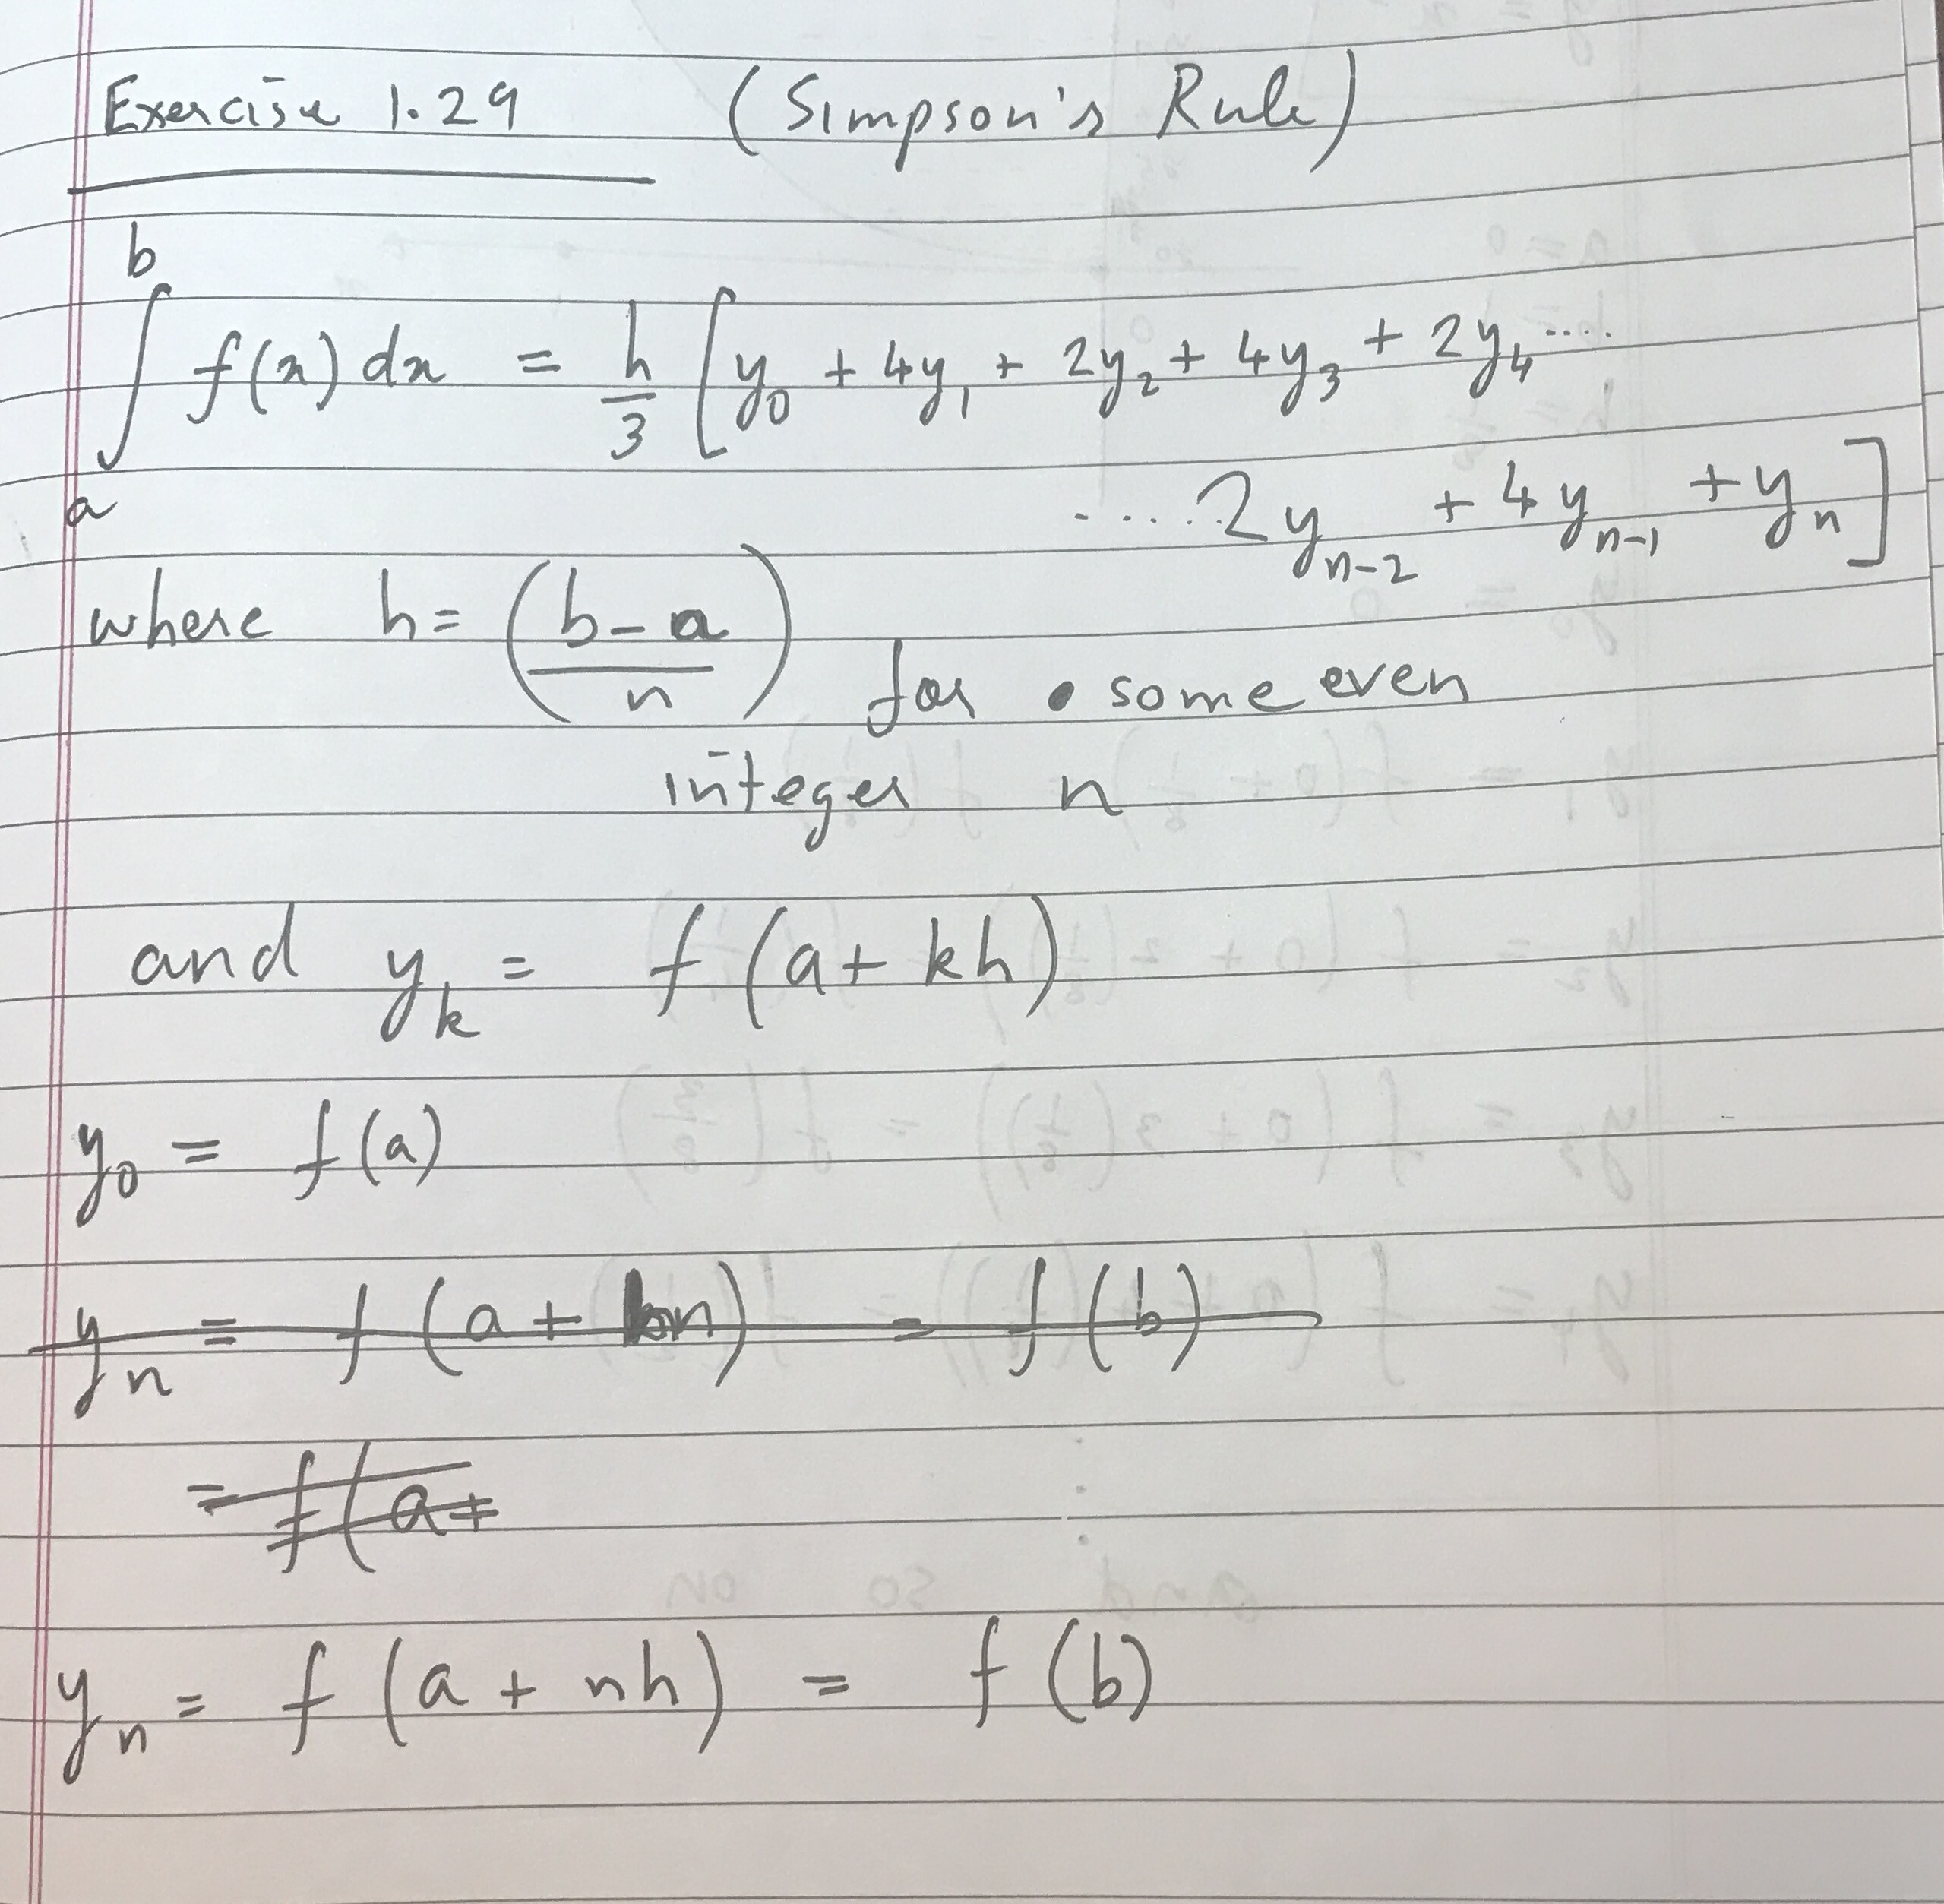 Exercise 1.29 (Simpson's Rule)
∫_a^b f(x) dx = h/3 [y_0 + 4y_1 + 2y_2 + 4y_3 + 2y_4 ....
.... 2y_{n-2} + 4y_{n-1} + y_n]
where h = ((b-a)/n) for some even
integer n
and y_k = f(a + kh)
y_0 = f(a)
y_n = f(a + hn) = f(b)
= f(a +
y_n = f(a + nh) = f(b)